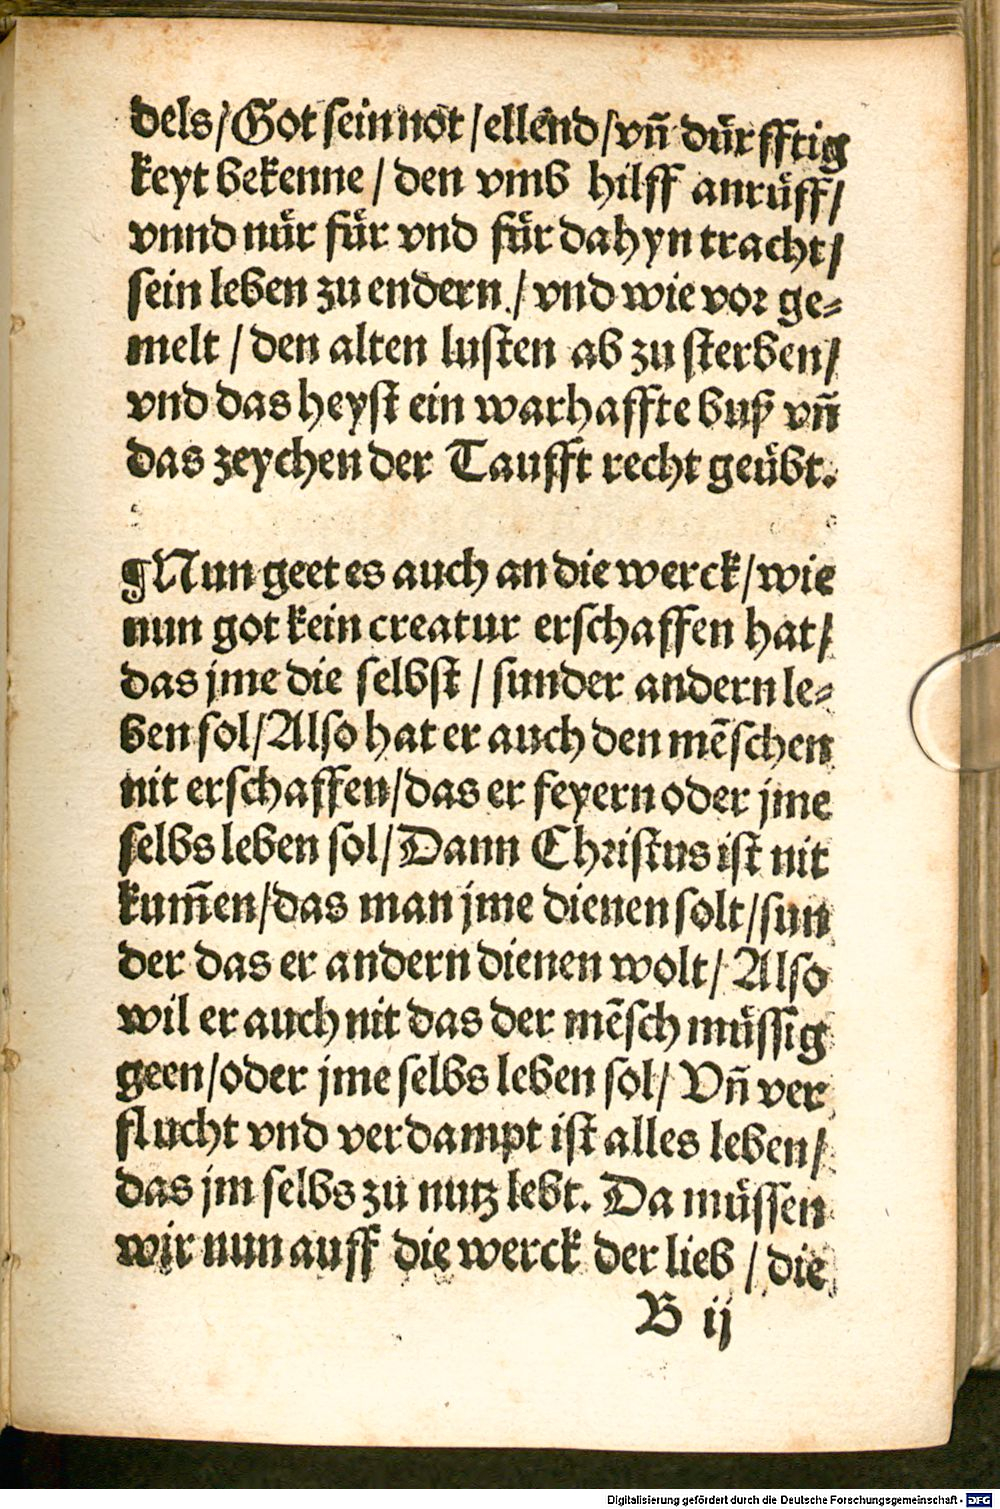 dels/Got sein not/ellend/vñ dürfftig
keyt bekenne/den vmb hilff anrüff/
vnnd nür für vnd für dahyn tracht/
sein leben zu endern/vnd wie vor ge⸗
melt/den alten lusten ab zu sterben/
vnd das heyst ein warhaffte buß vñ
das zeychen der Taufft recht geübt.
¶Nun geet es auch an die werck/wie
nun got kein creatur erschaffen hat/
das jme die selbst/sunder andern le⸗
ben sol/Also hat er auch den mẽschen
nit erschaffen/das er feyern oder jme
selbs leben sol/Dann Christus ist nit
kum̃en/das man jme dienen solt/sun
der das er andern dienen wolt/Also
wil er auch nit das der mẽsch müssig
geen/oder jme selbs leben sol/Vñ ver
flucht vnd verdampt ist alles leben/
das jm selbs zu nutz lebt. Da müssen
wir nun auff die werck der lieb/die
B ij
Digitalisierung gefördert durch die Deutsche Forschungsgemeinschaft - DFG